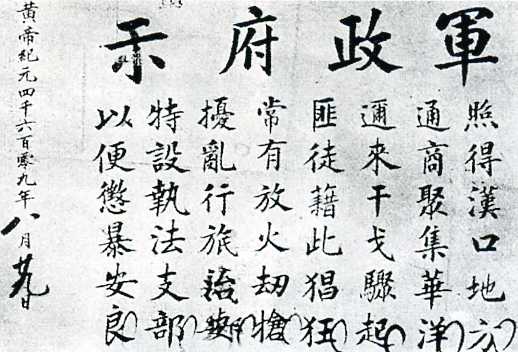 軍政府示
照得漢口地方
通商聚集華洋
邇來干戈驟起
匪徒藉此猖狂
常有放火刼搶
擾亂行旅治
特設執法支部
以便懲暴安良
黃帝紀元四千六百零九年八月廿九日